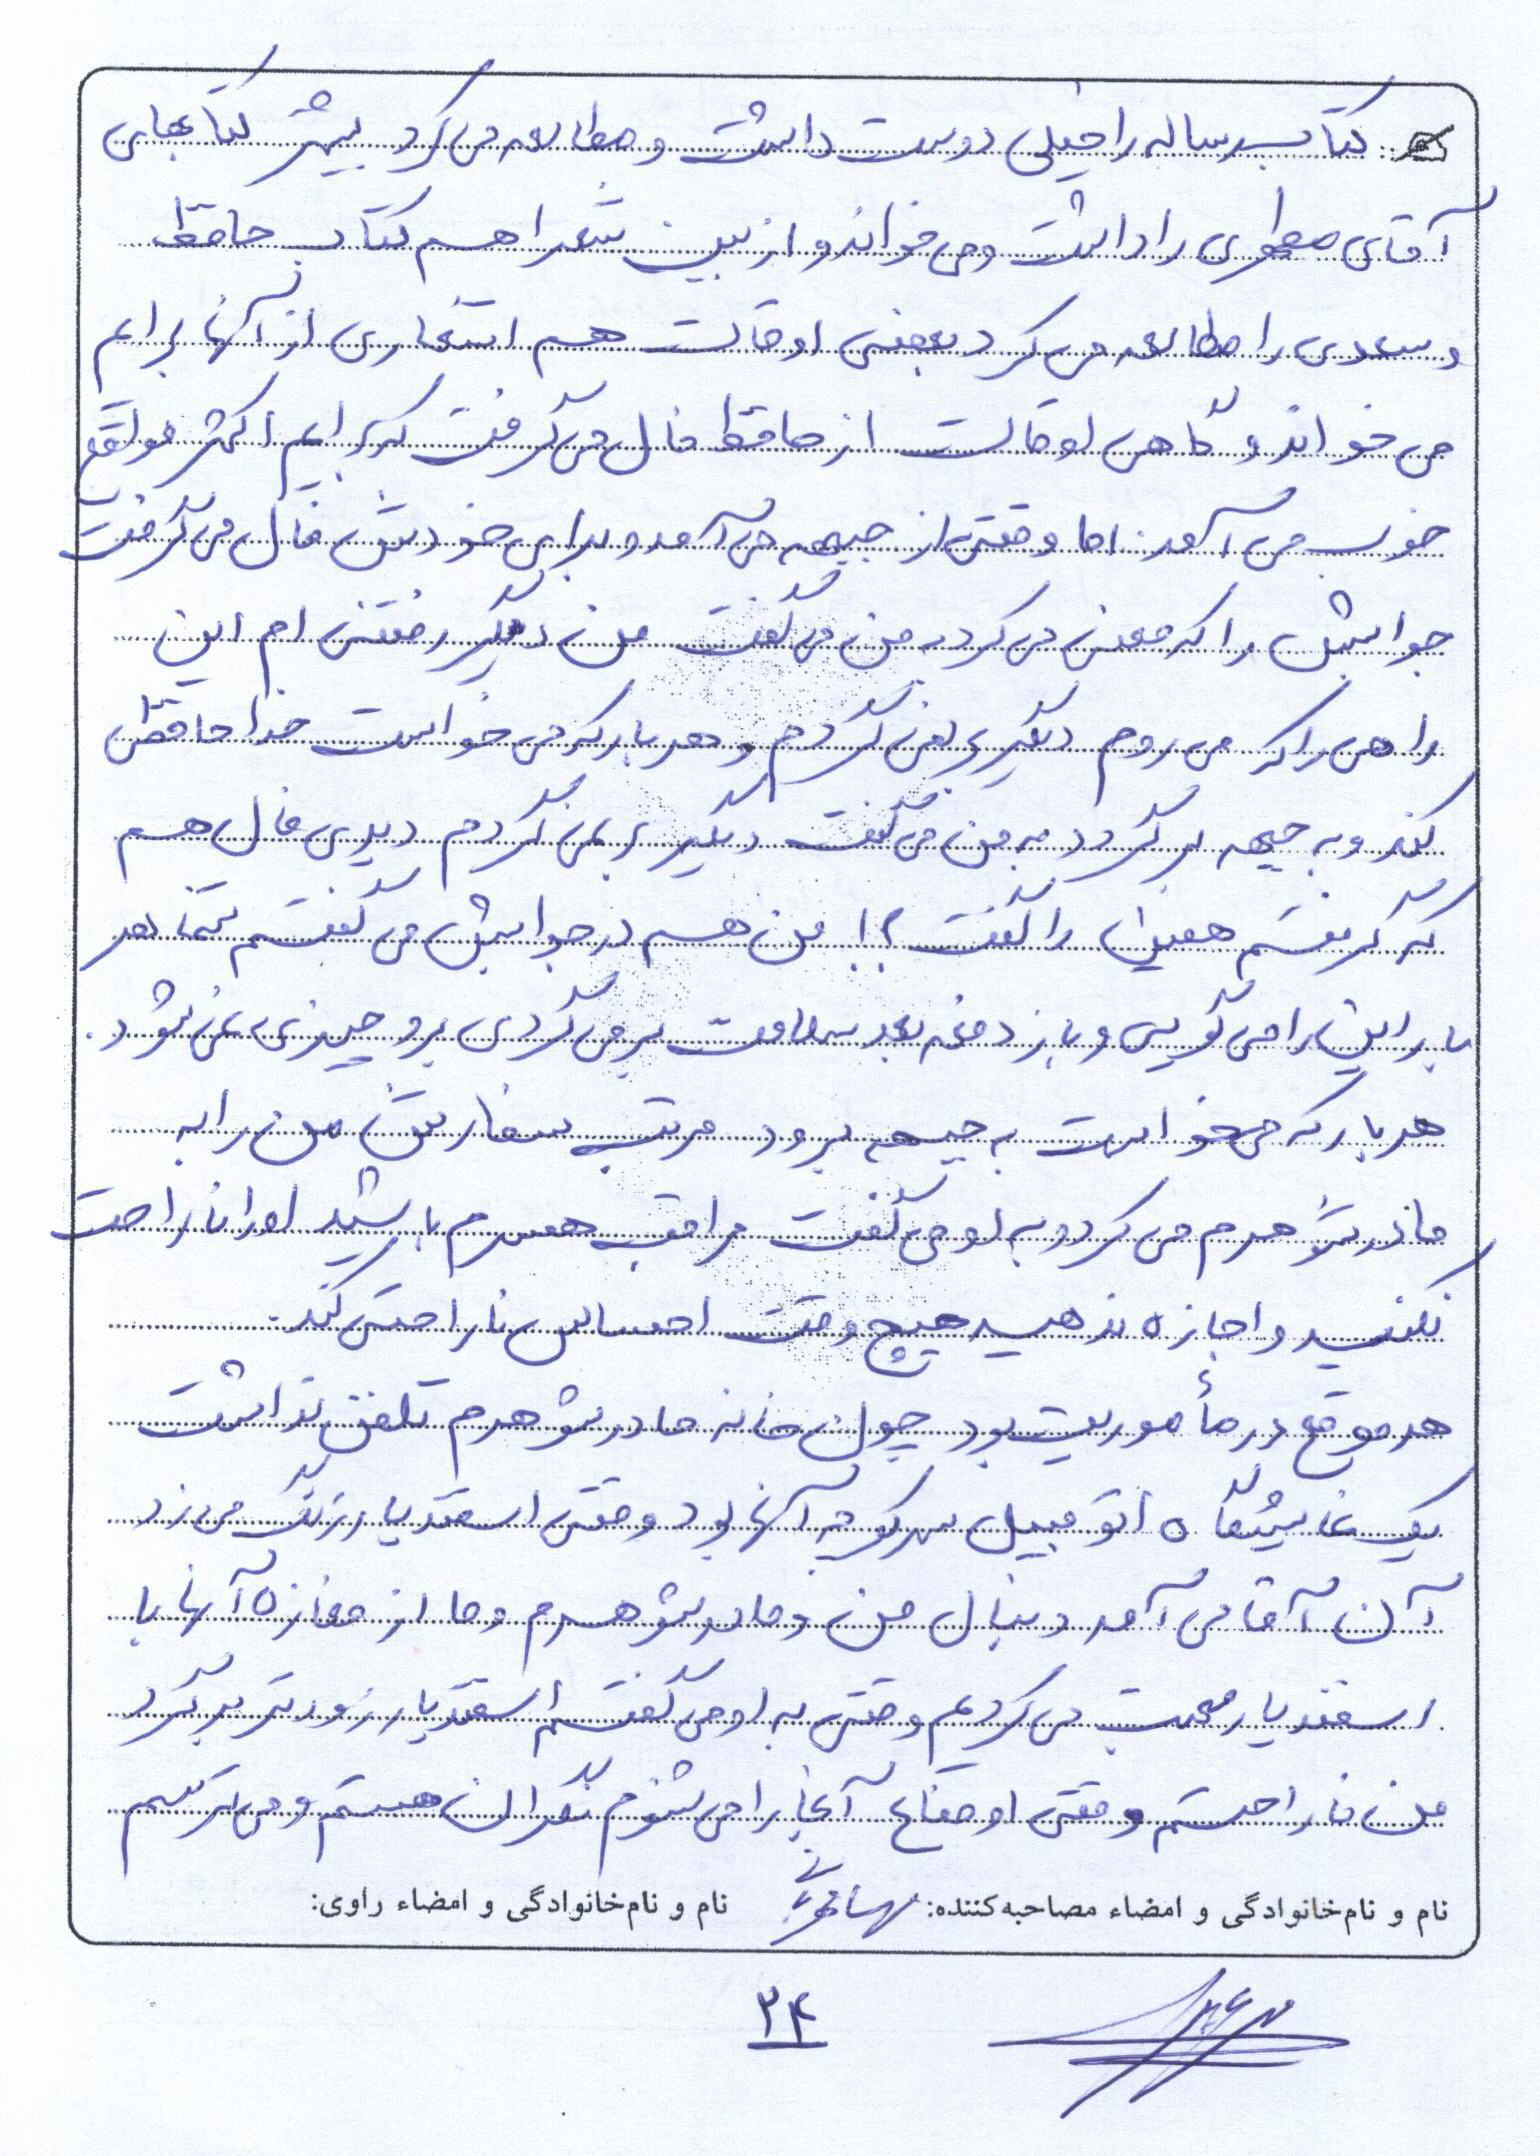 کتاب رساله را خیلی دوست داشت و مطالعه می کرد بیشتر کتابهای
آقای مطهری را داشت و می خواند و از بین شعرا هم کتاب حافظ
و سعدی را مطالعه می کرد بعضی اوقات هم اشعاری از آنها برایم
می خواند و گاهی اوقات از حافظ فال می گرفت که برایم اکثر مواقع
خوب می آمد. اما وقتی از جبهه می آمد و برای خودش فال می گرفت
جوابش را که معنی می کرد به من می گفت من دیگر رفتنی ام این
راهی را که می روم دیگر بر نمی گردم و هر بار که می خواست خداحافظی
کند و به جبهه برگردد به من می گفت دیگر بر نمی گردم دیدی فال هم
که گرفتم همین را گفت؟!! من هم در جوابش می گفتم شما هر
بار این را می گویی و باز دفعه بعد سلامت بر می گردی برو چیزی نمی شود.
هر بار که می خواست به جبهه برود مرتب سفارش من را به
مادر شوهرم می کرد و به او می گفت مراقب همسرم باشید او را ناراحت
نکنید و اجازه ندهید هیچ وقت احساس ناراحتی کند.
هر موقع در مأموریت بود چون خانه مادر شوهرم تلفن نداشت
یک نمایشگاه اتومبیل سر کوچه آنها بود وقتی اسفندیار زنگ می زد
آن آقا می آمد دنبال من و مادر شوهرم و ما از مغازه آنها با
اسفندیار صحبت می کردیم وقتی به او می گفتم اسفندیار زودتر برگرد
من ناراحتم وقتی اوضاع آنجا را می شنوم نگران هستم و می ترسم
نام و نام‌خانوادگی و امضاء مصاحبه‌کننده: نام و نام‌خانوادگی و امضاء راوی:
۲۴